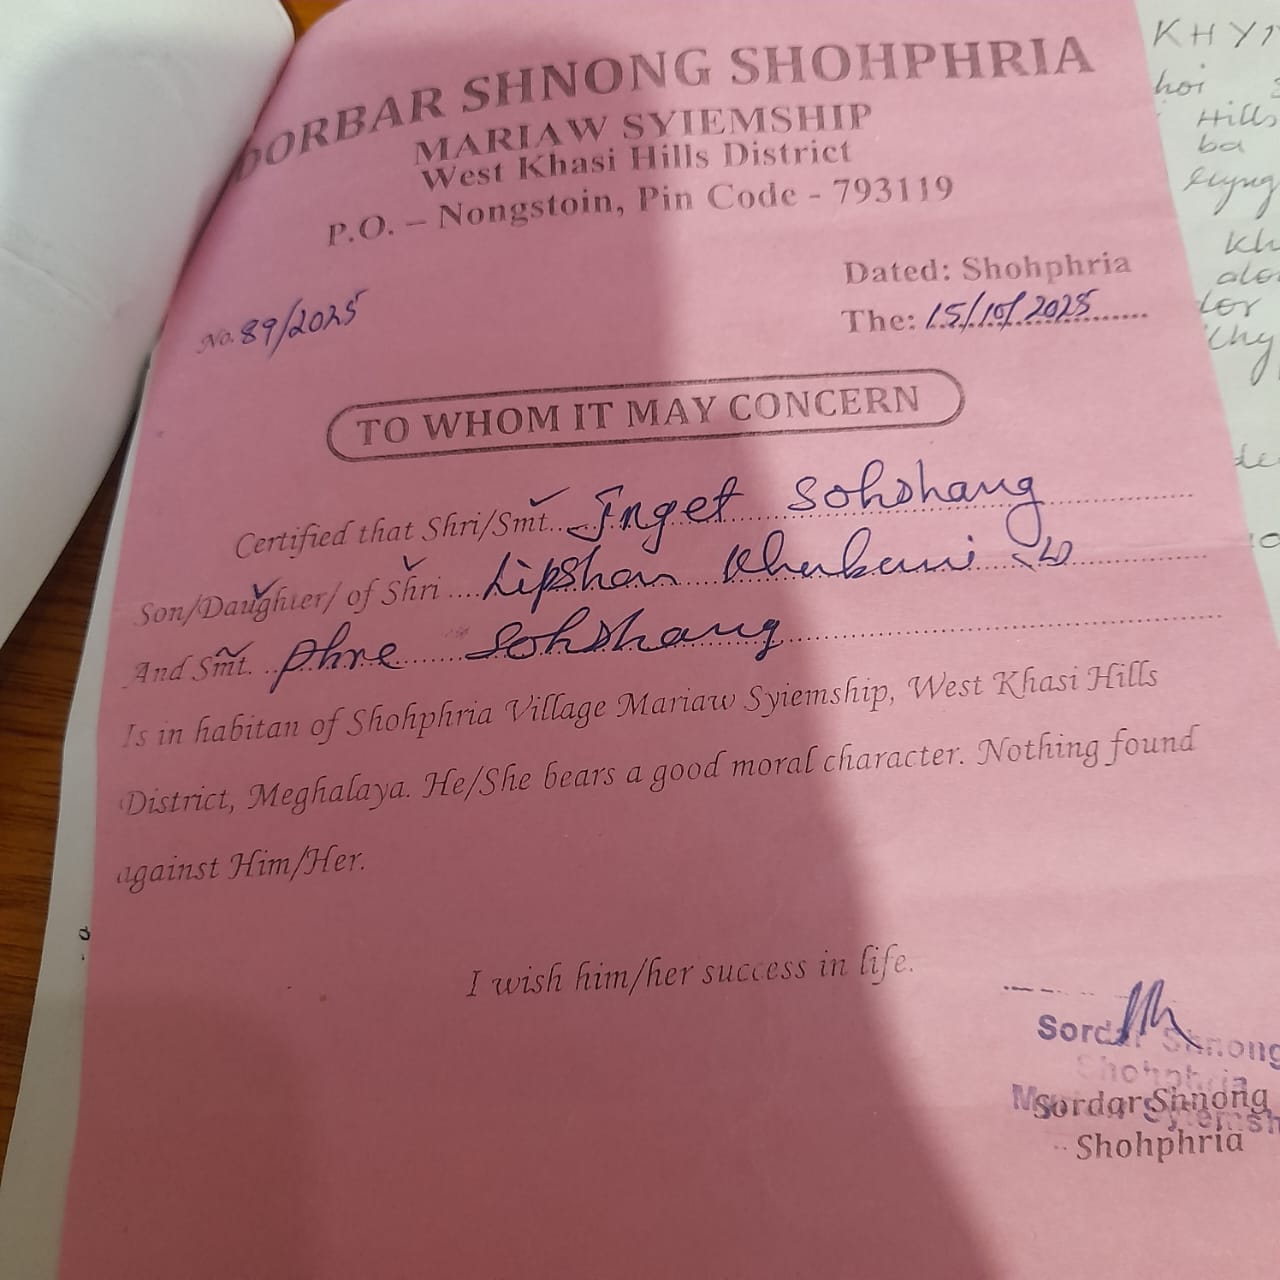 DORBAR SHNONG SHOHPHRIA
MARIAW SYIEMSHIP
West Khasi Hills District
P.O. – Nongstoin, Pin Code - 793119
Dated: Shohphria
No. 89/2025
The: 15/10/2025
TO WHOM IT MAY CONCERN
Certified that Shri/Smt... Inget Sohshang
Son/Daughter/ of Shri .... Lipshon
And Smt. .. Phre Sohshang
Is in habitan of Shohphria Village Mariaw Syiemship, West Khasi Hills
District, Meghalaya. He/She bears a good moral character. Nothing found
against Him/Her.
I wish him/her success in life.
Sordar Shnong
Shohphria
Sordar Shnong
Shohphria
hoi
Hills
ba